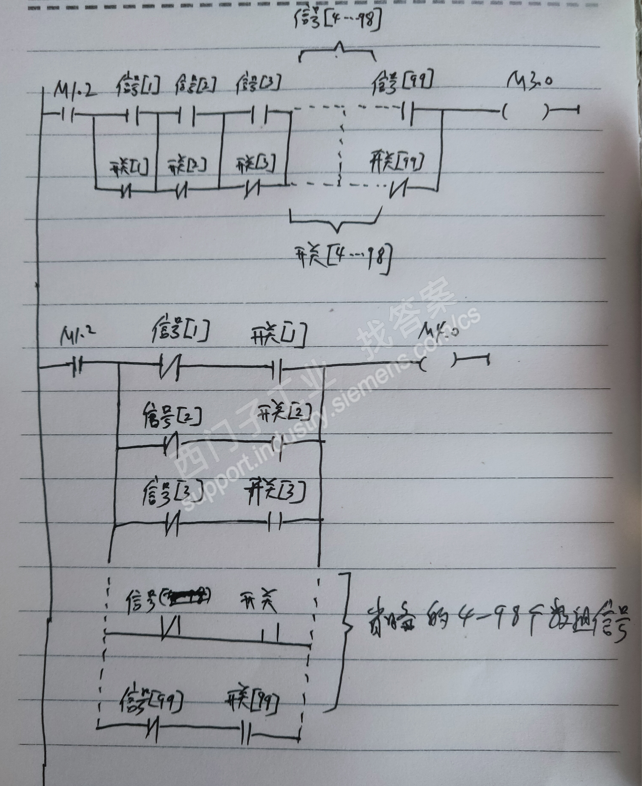 信号[4…98]
M1.2 信号[1] 信号[2] 信号[3] 信号[99] M3.0
开关[1] 开关[2] 开关[3] 开关[99]
开关[4…98]
M1.2 信号[1] 开关[1] M4.0
信号[2] 开关[2]
信号[3] 开关[3]
信号 开关
省略的4-98个数组信号
信号[99] 开关[99]
西门子工业 找答案
support.industry.siemens.com/cs